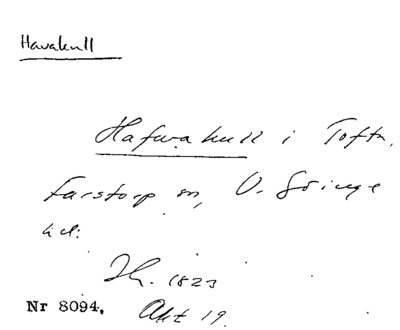 Havakull
Hafwa kull i Tofta,
Farstorp sn, V. Göinge
hd:
Sk. 1823
Nr 8094. Akt 19.